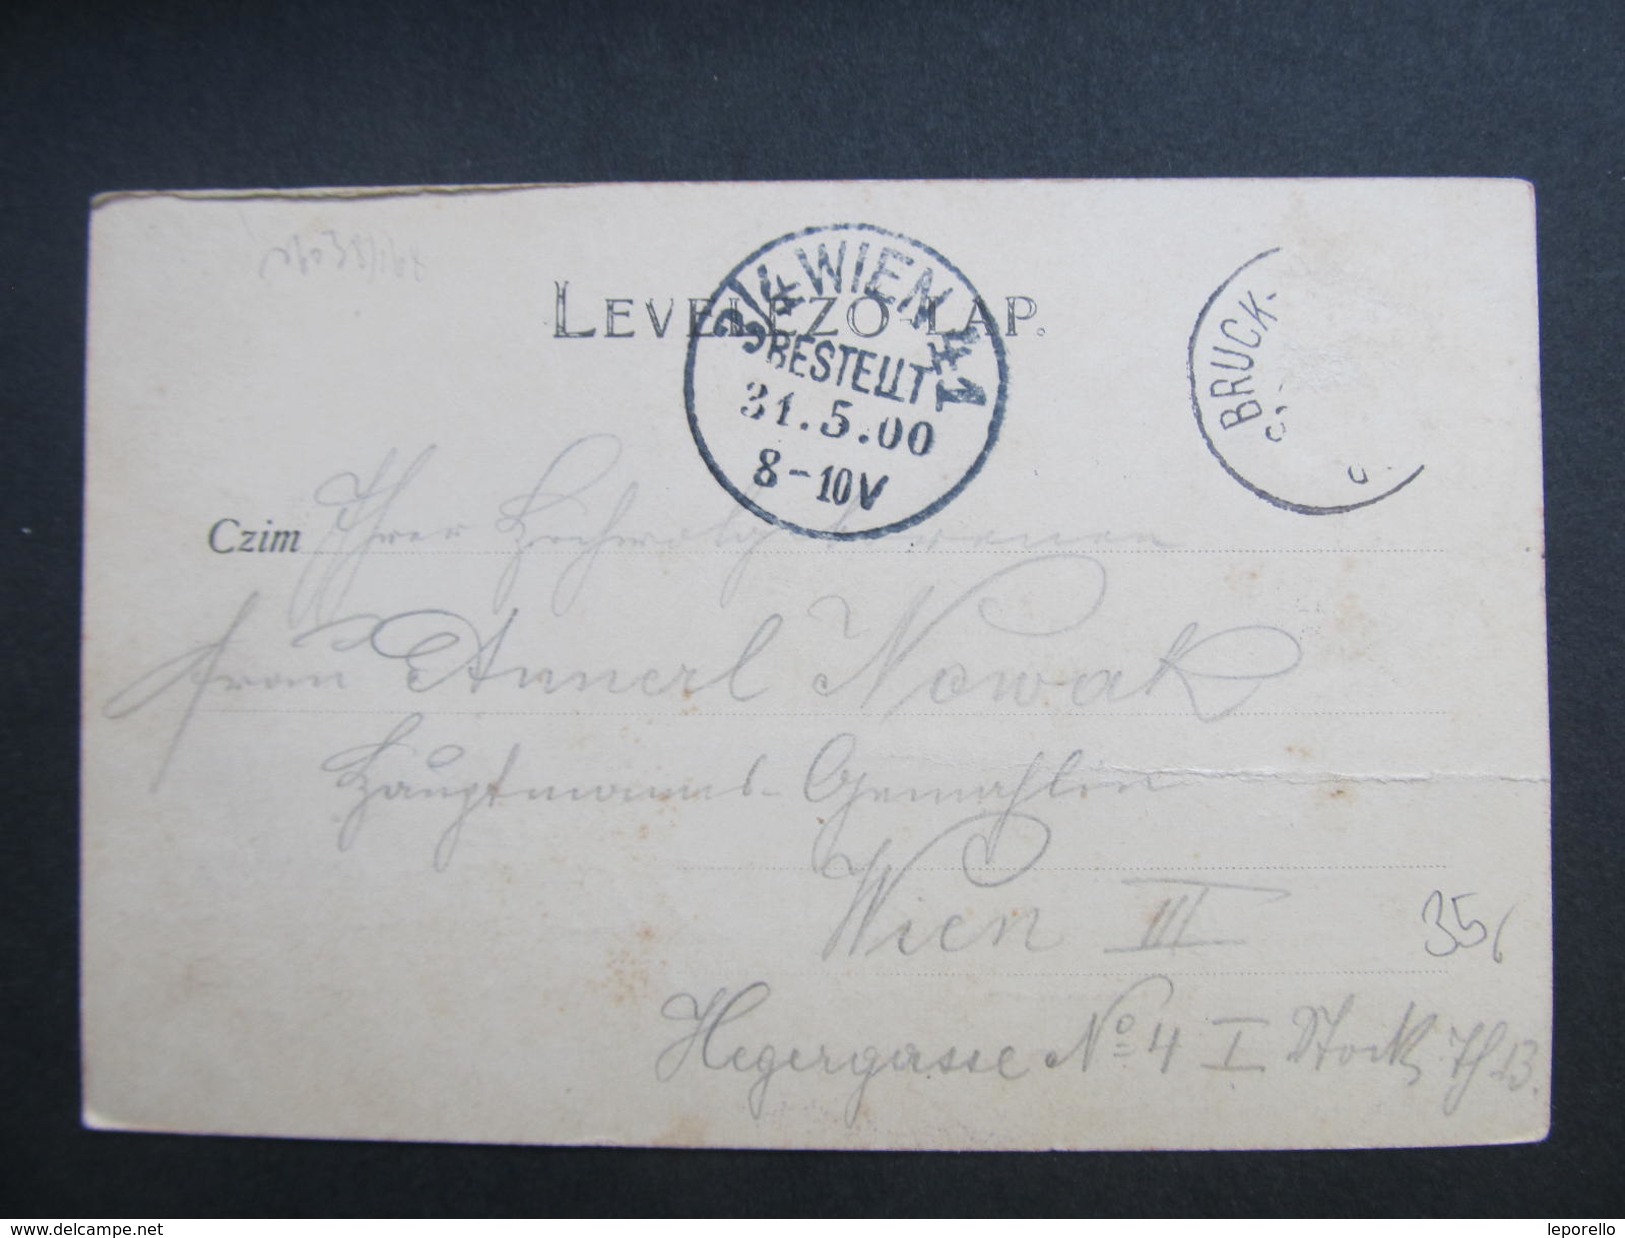 LEVELEZŐ-LAP.
3/4 WIEN 41
BESTELLT
31.5.00
8-10V
BRUCK-
Czim Ihrer Hochwohlgeborenen
Frau Annerl Nowak
Hauptmanns-Gemahlin
Wien III
35
Hegergasse No 4 I Stock Th 13.
delcampe.net
leporello